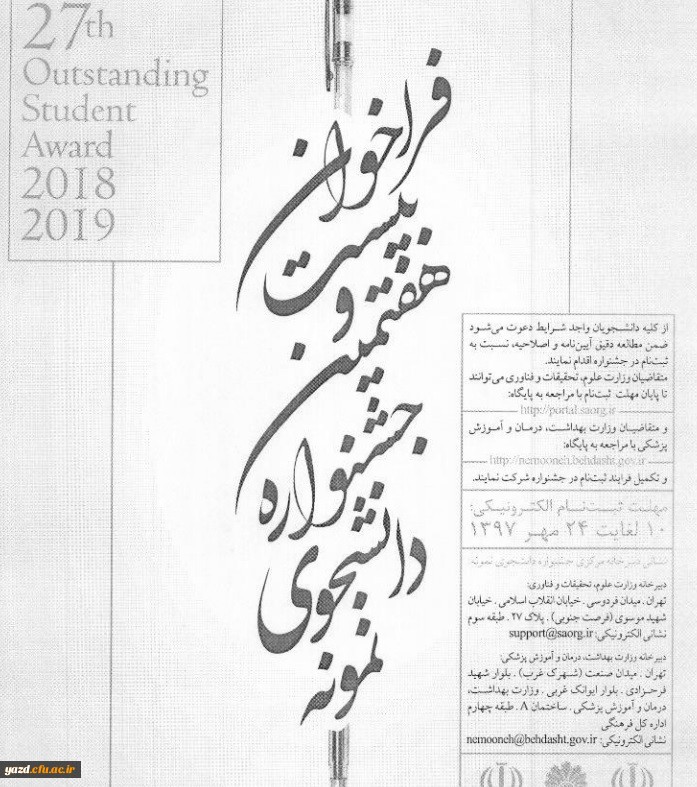 27th
Outstanding
Student
Award
2018
2019
فراخوان
بیست
و
هفتمین
جشنواره
دانشجوی
نمونه
از کلیه دانشجویان واجد شرایط دعوت می‌شود
ضمن مطالعه دقیق آیین‌نامه و اصلاحیه، نسبت به
ثبت‌نام در جشنواره اقدام نمایند.
متقاضیان وزارت علوم، تحقیقات و فناوری می‌توانند
تا پایان مهلت ثبت‌نام با مراجعه به پایگاه:
http://portal.saorg.ir
و متقاضیان وزارت بهداشت، درمان و آموزش
پزشکی با مراجعه به پایگاه:
http://nemooneh.behdasht.gov.ir
و تکمیل فرایند ثبت‌نام در جشنواره شرکت نمایند.
مهلت ثبت‌نام الکترونیکی:
۱۰ لغایت ۲۴ مهر ۱۳۹۷
نشانی دبیرخانه مرکزی جشنواره دانشجوی نمونه:
دبیرخانه وزارت علوم، تحقیقات و فناوری:
تهران . میدان فردوسی . خیابان انقلاب اسلامی . خیابان
شهید موسوی (فرصت جنوبی) . پلاک ۲۷ . طبقه سوم
نشانی الکترونیکی: support@saorg.ir
دبیرخانه وزارت بهداشت، درمان و آموزش پزشکی:
تهران . میدان صنعت (شهرک غرب) . بلوار شهید
فرحزادی . بلوار ایوانک غربی . وزارت بهداشت،
درمان و آموزش پزشکی . ساختمان A . طبقه چهارم
اداره کل فرهنگی
نشانی الکترونیکی: nemooneh@behdasht.gov.ir
yazd.cfu.ac.ir